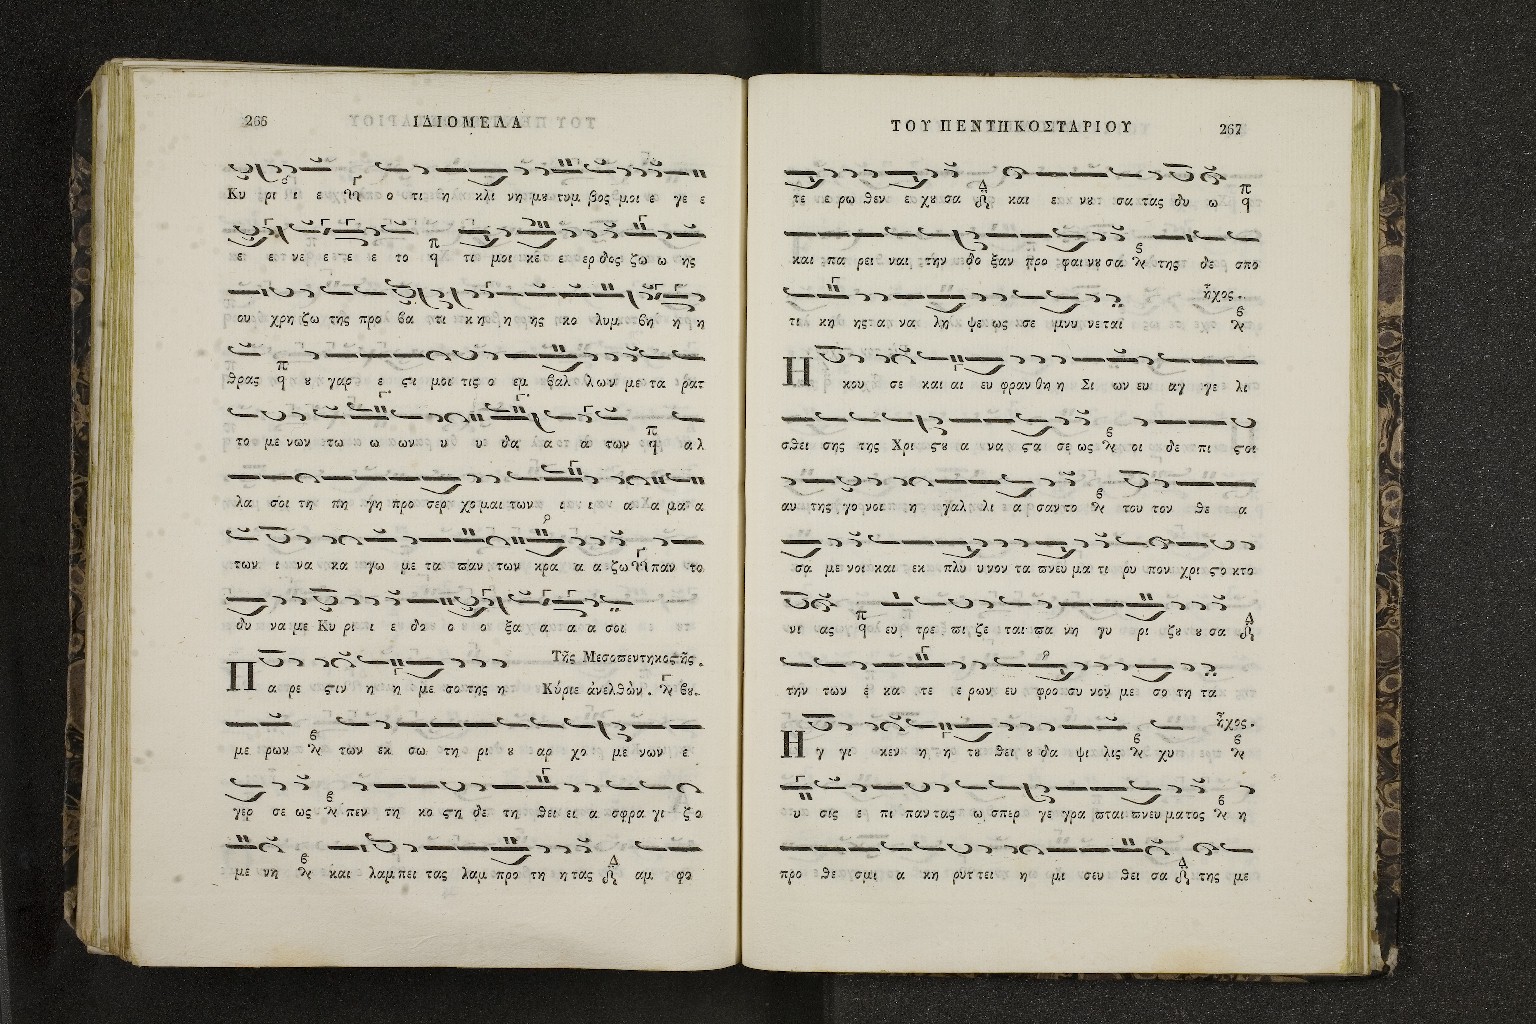 266 ΙΔΙΟΜΕΛΑ
Κυ ρι ι ε ο τι η κλι νη μȣ τυμ βος μοι ε γε ε
ε ε νε ε ε ε το τι μοι κε ε ερ δος ζω ω ης
ου χρη ζω της προ βα τι κη η ης κο λυμ βη η η
θρας ȣ γαρ ε ϛι μοι τις ο εμ βαλ λων με τα ρατ
το με νων τω ω ων υ υ δα α α των αλ
λα σοι τη πη γη προ σερ χο μαι των ι ι α α μα α
των ι να κα γω με τα ϖαν των κρα α α ζω παν το
δυ να με Κυ ρι ι ε δο ο ο ξα α α α σοι
Τῆς Μεσοϖεντηκοϛῆς.
Πα ρε ϛιν η η με σο της η Κύριε ἀνελθὼν. βȣ.
με ρων των εκ σω τη ρι ȣ αρ χο με νων ε
γερ σε ως πεν τη κο ϛη δε τη θει ει α σφρα γι ζο
με νη και λαμ πει τας λαμ προ τη η τας αμ φο
ΤΟΥ ΠΕΝΤΗΚΟΣΤΑΡΙΟΥ 267
τε ε ρω θεν ε χȣ σα και ε νȣ σα τας δυ ω
και πα ρει ναι την δο ξαν προ φαι νȣ σα της δε σπο
τι κη ης α να λη ψε ως σε μνυ νε ται ἦχος.
Η κου σε και αι ευ φραν θη η Σι ων ευ αγ γε λι
σθει σης της Χρι ϛȣ α να ϛα σε ως οι δε πι ϛοι
αυ της γο νοι η γαλ λι α σαν το του τον θε α
σα με νοι και εκ πλυ υ νον τα ϖνευ μα τι ρυ πον χρι ϛο κτο
νι ας ευ τρε ϖι ζε ται ϖα νη γυ ρι ζȣ ȣ σα
την των ε κα τε ε ρων ευ φρο συ νον με σο τη τα
Ηγ γι κεν η η τȣ θει ȣ δα ψι λις χυ ἦχος.
υ σις ε πι παν τας ω σπερ γε γρα ϖται ϖνευ ματος η
προ θε σμι α κη ρυτ τει η μι σευ θει σα της με